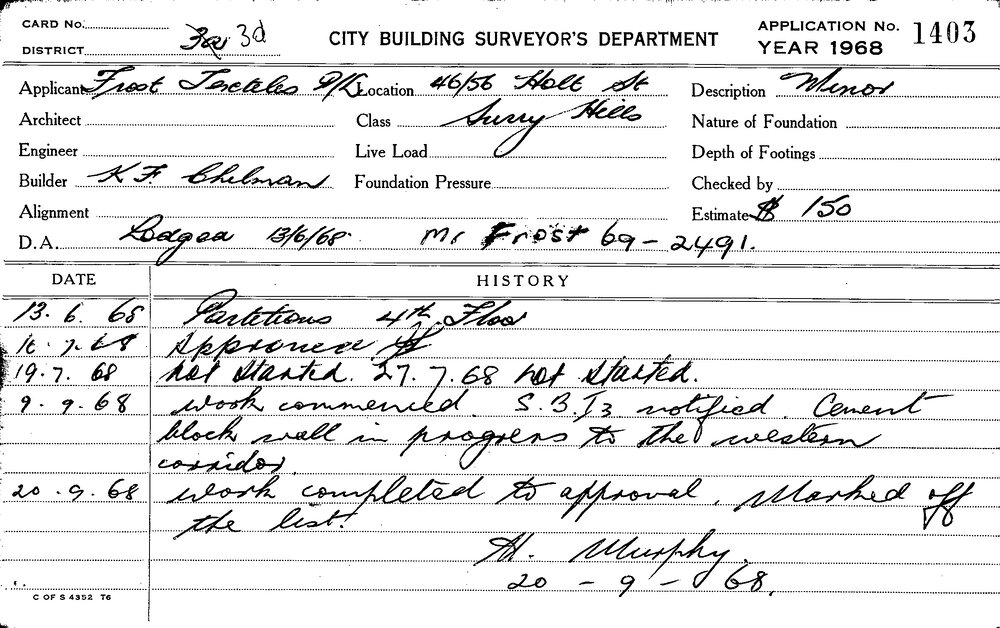 CARD No.
DISTRICT 3d
CITY BUILDING SURVEYOR'S DEPARTMENT
APPLICATION No. 1403
YEAR 1968
Applicant Frost Textiles P/L Location 46/56 Holt St Description Minor
Architect Class Surry Hills Nature of Foundation
Engineer Live Load Depth of Footings
Builder K F. Chelman Foundation Pressure Checked by
Alignment Estimate $ 150
D.A. Lodged 13/6/68. Mr Frost 69-2491.
DATE HISTORY
13. 6. 68 Partitions 4th Floor
16. 7. 68 Approved
19. 7. 68 not started. 27. 7. 68 not started.
9. 9. 68 work commenced. S.B.I3 notified. Cement
block wall in progress to the western
corridor.
20. 9. 68 work completed to approval. Marked off
the list.
H. Murphy.
20 - 9 - 68.
C OF S 4352 T6